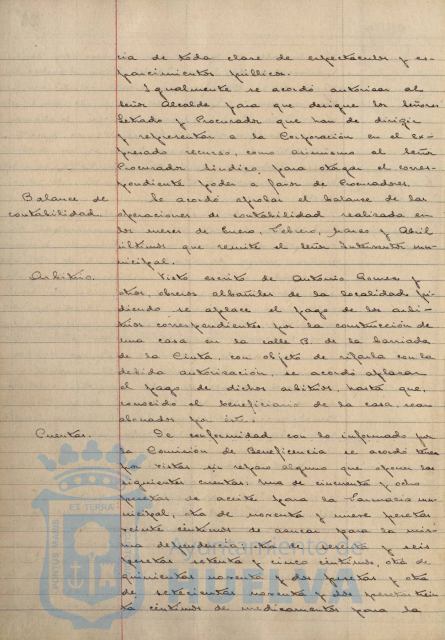 cia de toda clase de espectaculos y es-
parcimientos públicos.
Igualmente se acordó autorizar al
Señor Alcalde para que designe los Señores
Letrado y Procurador que han de dirigir
y representar a la Corporación en el ex-
presado recurso, como asimismo al Señor
Procurador Sindico, para otorgar el corres-
pondiente poder a favor de Procuradores.
Balance de
contabilidad.
Se acordó aprobar el balance de las
operaciones de contabilidad realizada en
los meses de Enero, Febrero, Marzo y Abril
últimos que remite el Señor Interventor mu-
nicipal.
Arbitrio.
Visto escrito de Antonio Gomez y
otros, obreros albañiles de la localidad pi-
diendo se aplace el pago de los arbi-
trios correspondientes por la construcción de
una casa en la calle B. de la barriada
de la Cinta, con objeto de rifarla con la
debida autorización, se acordó aplazar
el pago de dichos arbitrios, hasta que,
conocido el beneficiario de la casa, sean
abonados por éste.
Cuentas.
De conformidad con lo informado por
la Comisión de Beneficencia se acordó
por vistas sin reparo alguno que oponer las
siguientes cuentas: Una de cincuenta y ocho
pesetas de aceite para la Farmacia mu-
nicipal, otra de noventa y nueve pesetas
veinte centimos de azucar para la mis-
ma dependencia, otra de sesenta y seis
pesetas setenta y cinco centimos, otra de
quinientas noventa y dos pesetas y otra
de setecientas noventa y dos pesetas trein
ta centimos de medicamentos para la
Ayuntamiento de
HUELVA